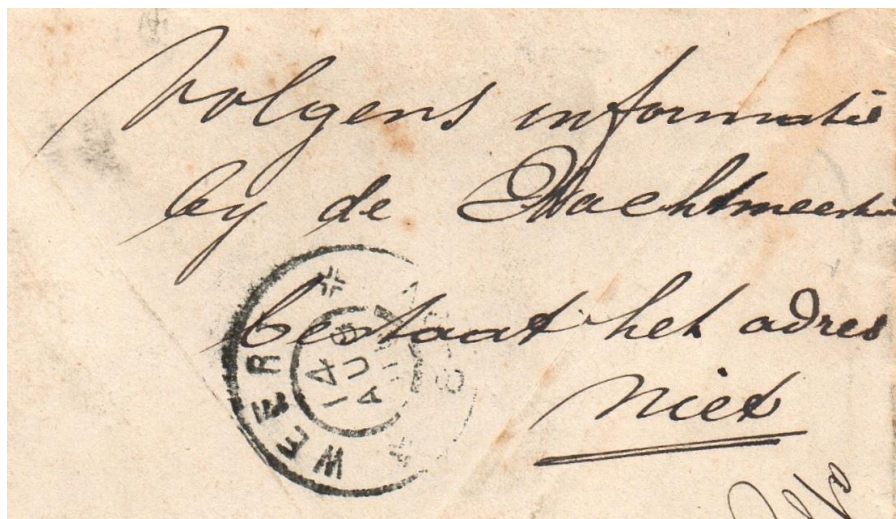 Volgens informatie
by de Wachtmeester
bestaat het adres
niet
WEERT
14
AUG